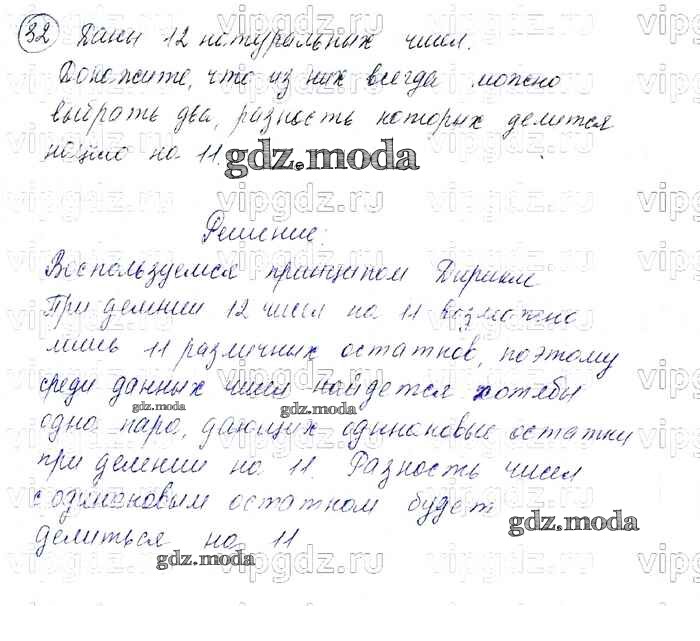 32 Даны 12 натуральных чисел.
Докажите, что из них всегда можно
выбрать два, разность которых делится
нацело на 11.
gdz.moda
Решение:
Воспользуемся принципом Дирихле
При делении 12 чисел на 11 возможно
лишь 11 различных остатков, поэтому
среди данных чисел найдется хотябы
gdz.moda
gdz.moda
одна пара, дающих одинаковые остатки
при делении на 11. Разность чисел
с одинаковым остатком будет
gdz.moda
делиться на 11
gdz.moda
vipgdz.ru